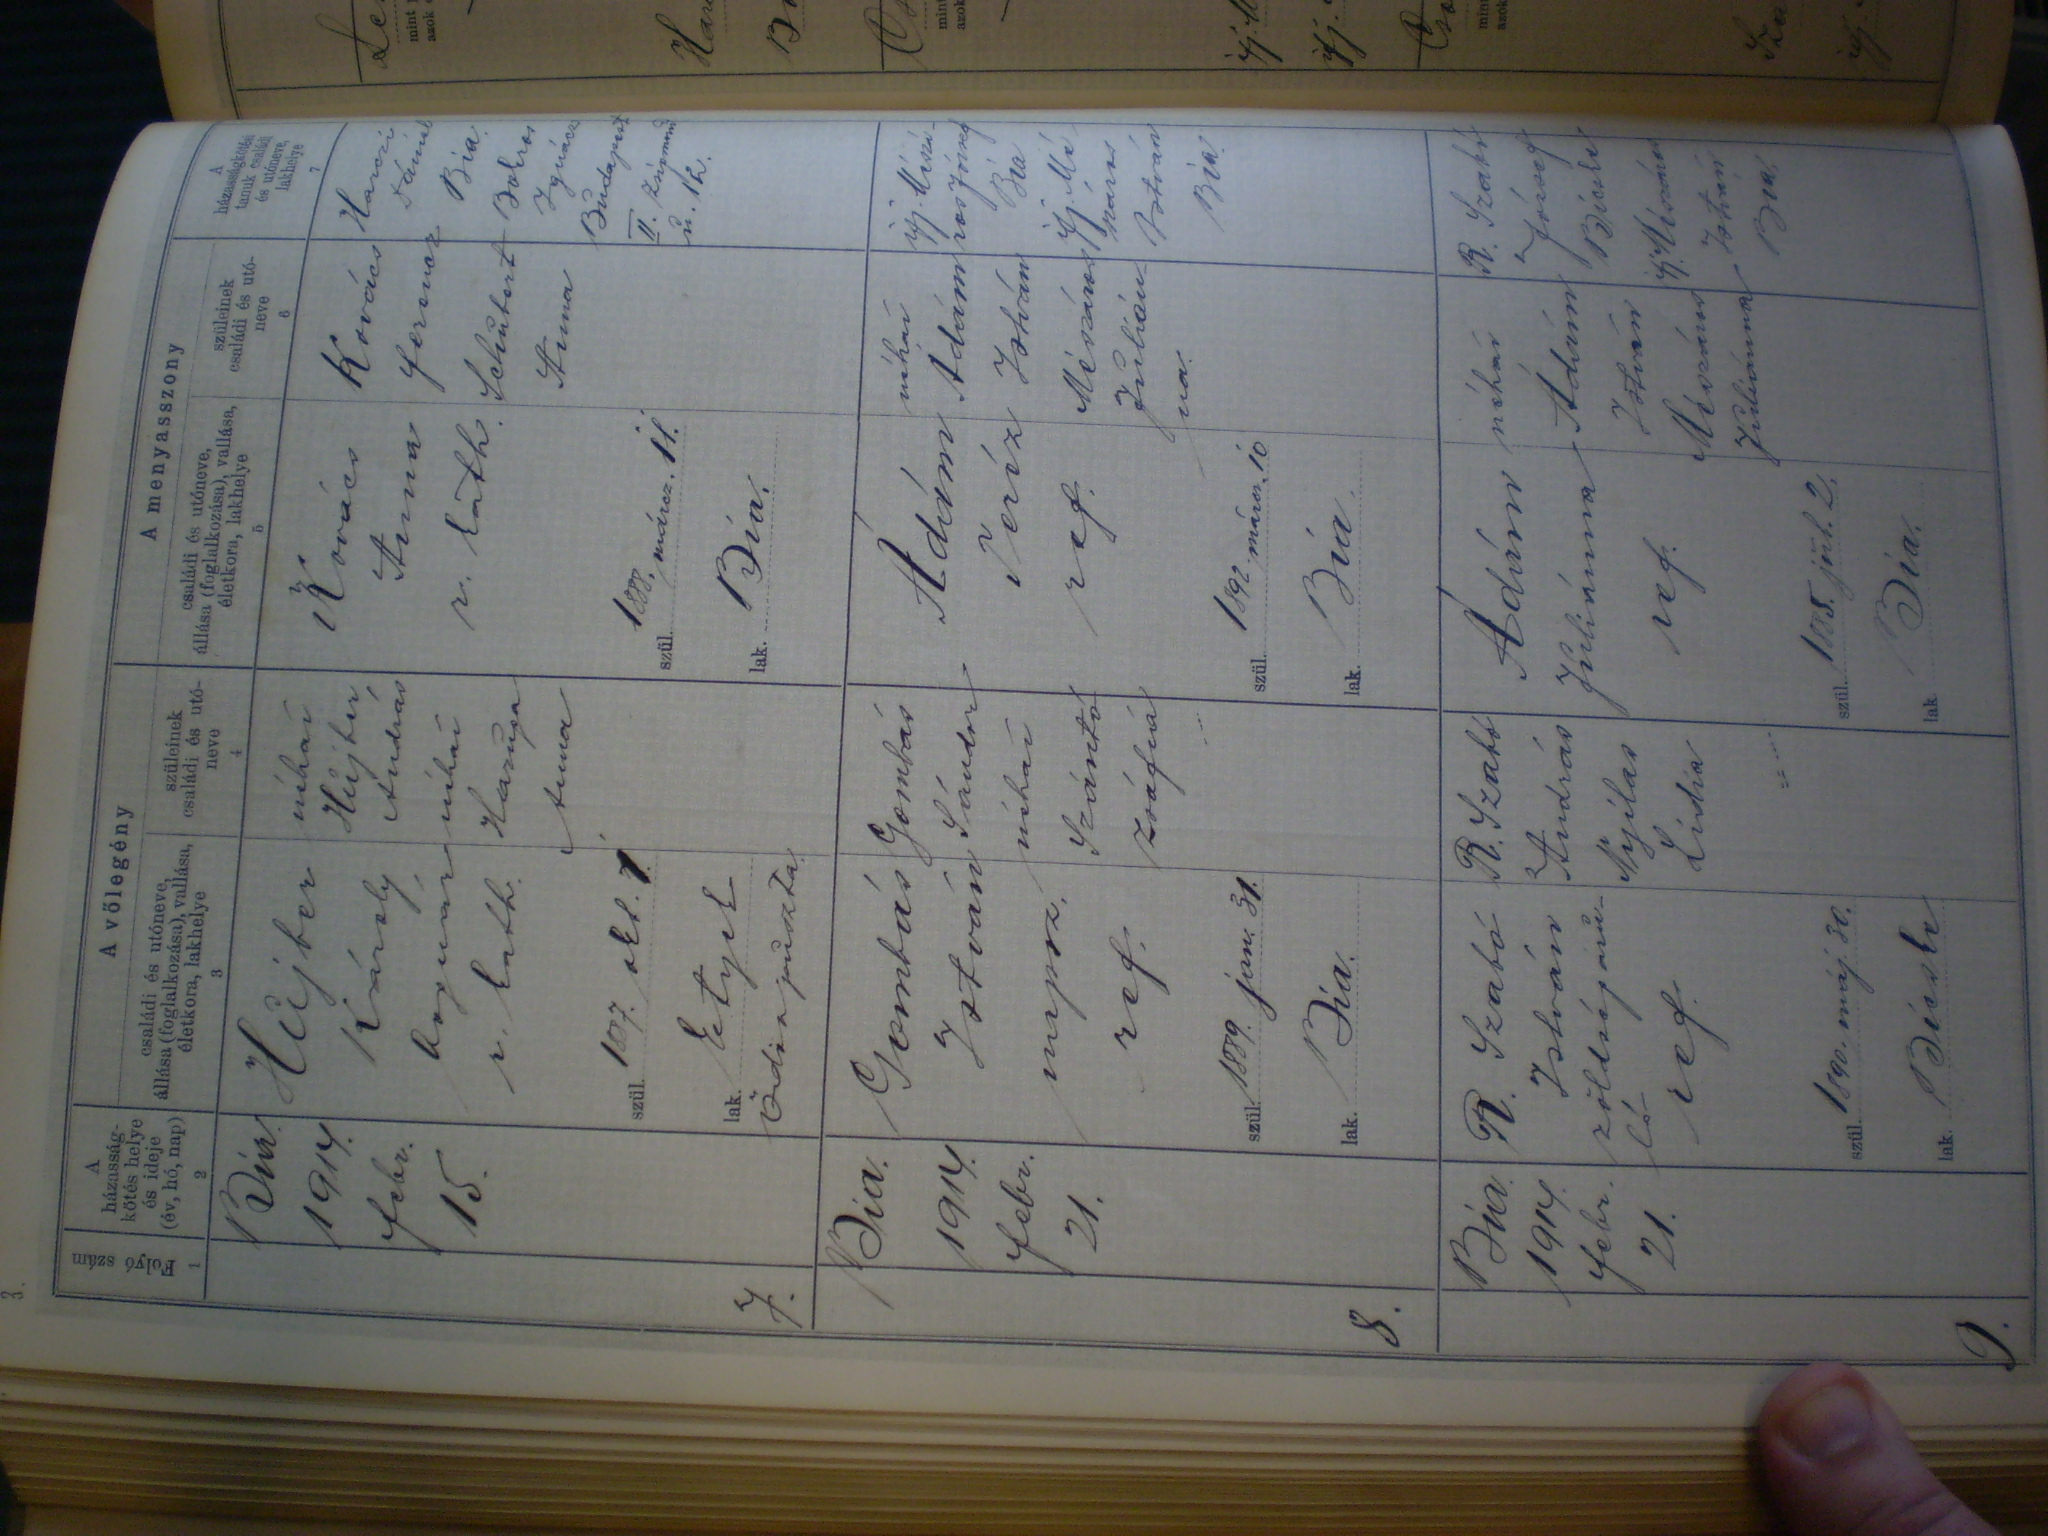 3.
A vőlegény
A menyasszony
Folyó
szám
A
házasság-
kötés helye
és ideje
(év, hó, nap)
családi és utóneve,
állása (foglalkozása), vallása,
életkora, lakhelye
szüleinek
családi és utó-
neve
családi és utóneve,
állása (foglalkozása), vallása,
életkora, lakhelye
szüleinek
családi és utó-
neve
A
házasságkötési
tanuk családi
és utóneve,
lakhelye
1
2
3
4
5
6
7
7.
Bia.
1914.
febr.
15.
Hujber
Károly
r. kath.
szül. 1887. okt. 1.
lak. Etyek
Ödönpuszta
néhai
Hujber
András
néhai
Haruza
Anna
Kovács
Anna
r. kath.
szül. 1888. márcz. 11.
lak. Bia.
Kovács
Ferencz
Schubert
Anna
Dániel
Bia.
Bokros
Ignácz
Budapest
II. Zsigmond
u. 12.
8.
Bia.
1914.
febr.
21.
Gombás
István
napsz.
ref.
szül. 1889. jan. 31.
lak. Bia.
Gombás
Sándor
néhai
Szántó
Zsófia
Ádám
Teréz
ref.
szül. 1892. márcz. 10
lak. Bia.
néhai
Ádám
István
Mészáros
Julián-
na.
ifj. Mészá-
ros József
Bia
ifj. Mé-
száros
István
Bia.
9.
Bia.
1914.
febr.
21.
R. Szabó
István
zöldségáru-
ló
ref.
szül. 1890. máj. 30.
lak. Bicske
R. Szabó
András
Nyilas
Lidia
Ádám
Juliánna
ref.
szül. 1885. júl. 2.
lak. Bia.
néhai
Ádám
István
Mészáros
Juliánna
R. Szabó
József
Bicske
ifj. Mészáros
István
Bia.